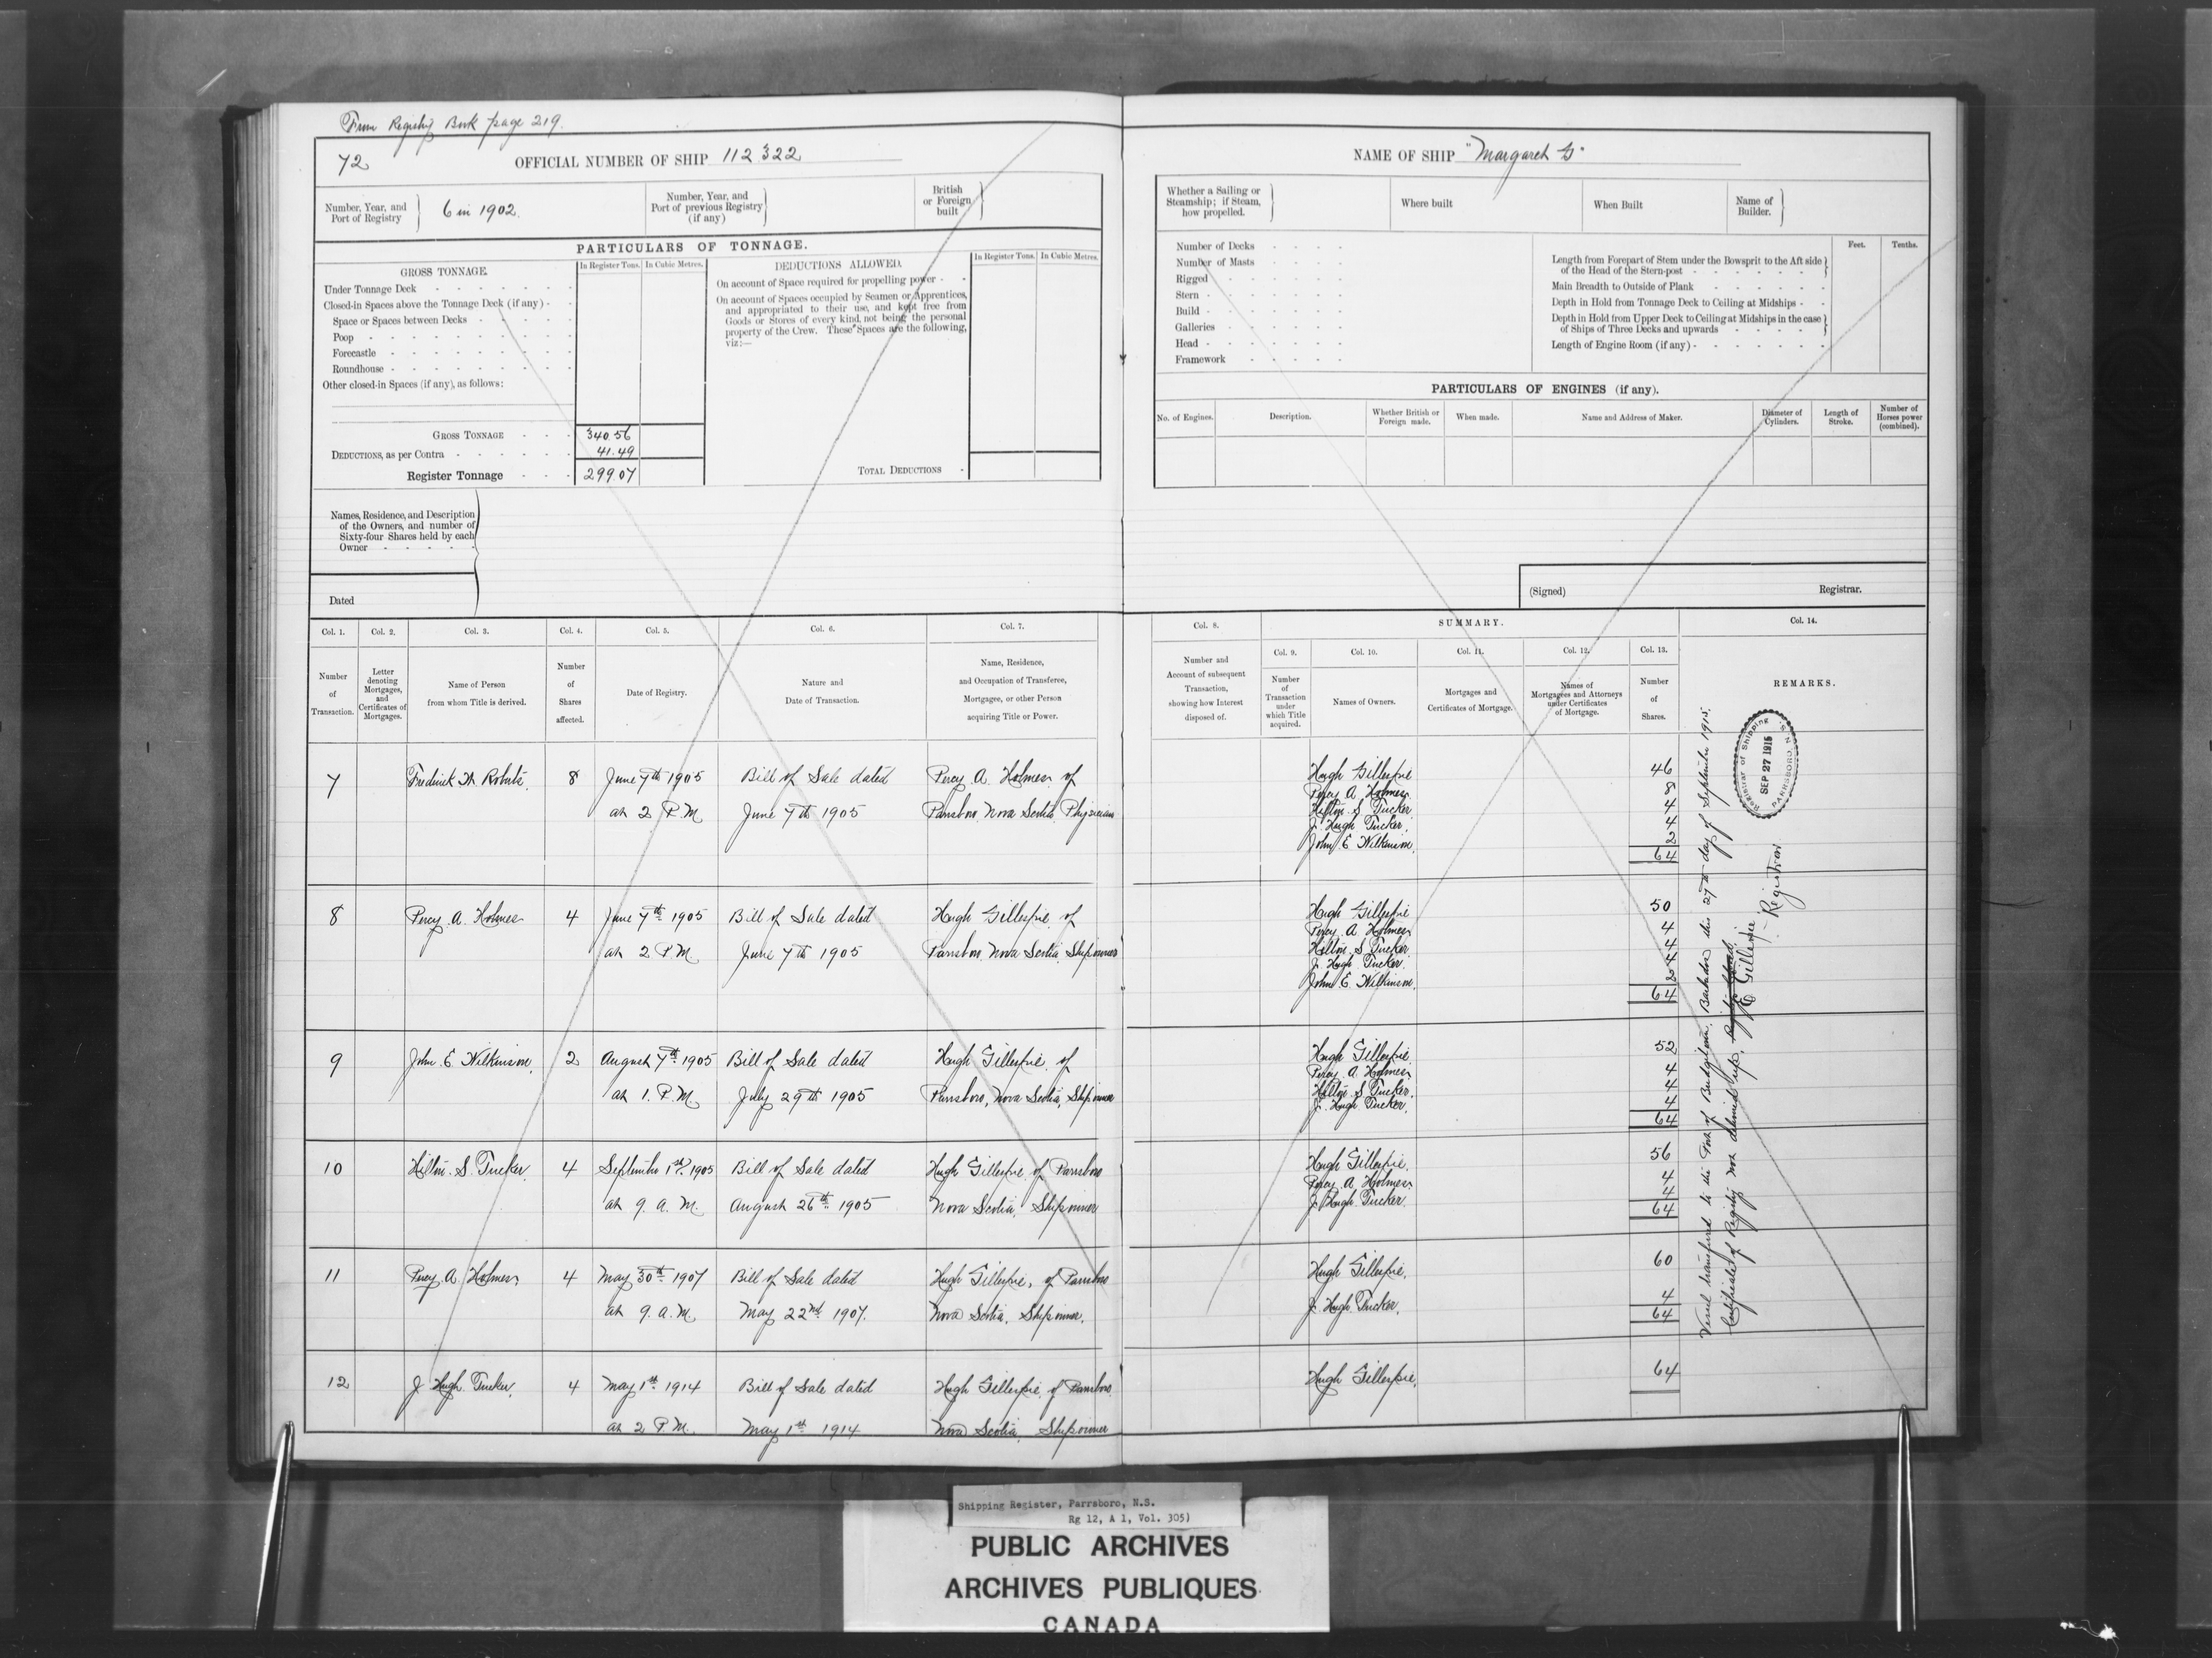 From Registry Book page 219.
72
OFFICIAL NUMBER OF SHIP 112322
Number, Year, and
Port of Registry
6 in 1902.
Number, Year, and
Port of previous Registry
(if any)
British
or Foreign
built
PARTICULARS OF TONNAGE.
GROSS TONNAGE.
In Register Tons. In Cubic Metres.
Under Tonnage Deck
Closed-in Spaces above the Tonnage Deck (if any)
Space or Spaces between Decks
Poop
Forecastle
Roundhouse
Other closed-in Spaces (if any), as follows:
GROSS TONNAGE 340.56
DEDUCTIONS, as per Contra 41.49
Register Tonnage 299.07
DEDUCTIONS ALLOWED.
In Register Tons. In Cubic Metres.
On account of Space required for propelling power
On account of Spaces occupied by Seamen or Apprentices,
and appropriated to their use, and kept free from
Goods or Stores of every kind, not being the personal
property of the Crew. These Spaces are the following,
viz:—
TOTAL DEDUCTIONS
Names, Residence, and Description
of the Owners, and number of
Sixty-four Shares held by each
Owner
Dated
NAME OF SHIP "Margaret G"
Whether a Sailing or
Steamship; if Steam,
how propelled.
Where built
When Built
Name of
Builder.
Number of Decks
Number of Masts
Rigged
Stern
Build
Galleries
Head
Framework
Feet. Tenths.
Length from Forepart of Stem under the Bowsprit to the Aft side
of the Head of the Stern-post
Main Breadth to Outside of Plank
Depth in Hold from Tonnage Deck to Ceiling at Midships
Depth in Hold from Upper Deck to Ceiling at Midships in the case
of Ships of Three Decks and upwards
Length of Engine Room (if any)
PARTICULARS OF ENGINES (if any).
No. of Engines.
Description.
Whether British or
Foreign made.
When made.
Name and Address of Maker.
Diameter of
Cylinders.
Length of
Stroke.
Number of
Horses power
(combined).
(Signed) Registrar.
Col. 1. Col. 2. Col. 3. Col. 4. Col. 5. Col. 6. Col. 7.
Number
of
Transaction.
Letter
denoting
Mortgages,
and
Certificates of
Mortgages.
Name of Person
from whom Title is derived.
Number
of
Shares
affected.
Date of Registry.
Nature and
Date of Transaction.
Name, Residence,
and Occupation of Transferee,
Mortgagee, or other Person
acquiring Title or Power.
Col. 8.
Number and
Account of subsequent
Transaction,
showing how Interest
disposed of.
SUMMARY.
Col. 9. Col. 10. Col. 11. Col. 12. Col. 13.
Number
of
Transaction
under
which Title
acquired.
Names of Owners.
Mortgages and
Certificates of Mortgage.
Names of
Mortgagees and Attorneys
under Certificates
of Mortgage.
Number
of
Shares.
Col. 14.
REMARKS.
7 Frederick W. Roberts. 8 June 7th 1905 Bill of Sale dated Percy A. Holmes of
at 2 P.M. June 7th 1905 Parrsboro Nova Scotia Physician
Hugh Gillespie 46
Percy A Holmes 8
Hilton S. Tucker 4
J. Hugh Tucker. 4
John E Wilkinson. 2
64
8 Percy A. Holmes 4 June 7th 1905 Bill of Sale dated Hugh Gillespie of
at 2 P.M. June 7th 1905 Parrsboro Nova Scotia Shipowner
Hugh Gillespie 50
Percy A Holmes 4
Hilton S Tucker 4
J. Hugh Tucker. 4
John E. Wilkinson. 2
64
9 John E Wilkinson. 2 August 7th 1905 Bill of Sale dated Hugh Gillespie of
at 1. P.M. July 29th 1905 Parrsboro, Nova Scotia, Shipowner
Hugh Gillespie. 52
Percy A. Holmes 4
Hilton S Tucker. 4
J. Hugh Tucker. 4
64
10 Hilton S. Tucker. 4 September 1st 1905 Bill of Sale dated Hugh Gillespie of Parrsboro
at 9. a.M. August 26th 1905 Nova Scotia. Shipowner
Hugh Gillespie. 56
Percy A Holmes 4
J Hugh Tucker. 4
64
11 Percy A Holmes 4 May 30th 1907 Bill of Sale dated Hugh Gillespie, of Parrsboro
at 9. a.M. May 22nd 1907. Nova Scotia. Shipowner.
Hugh Gillespie. 60
J. Hugh Tucker. 4
64
12 J Hugh Tucker. 4 May 1st 1914 Bill of Sale dated Hugh Gillespie of Parrsboro.
at 2 P.M. May 1st 1914 Nova Scotia. Shipowner
Hugh Gillespie. 64
Vessel transferred to the Port of Bridgetown, Barbados this 27th day of September 1915.
Certificate of Registry not delivered up.
E Gillespie
Registrar
Registrar of Shipping
SEP 27 1915
PARRSBORO, N.S.
Shipping Register, Parrsboro, N.S.
Rg 12, A 1, Vol. 305)
PUBLIC ARCHIVES
ARCHIVES PUBLIQUES
CANADA